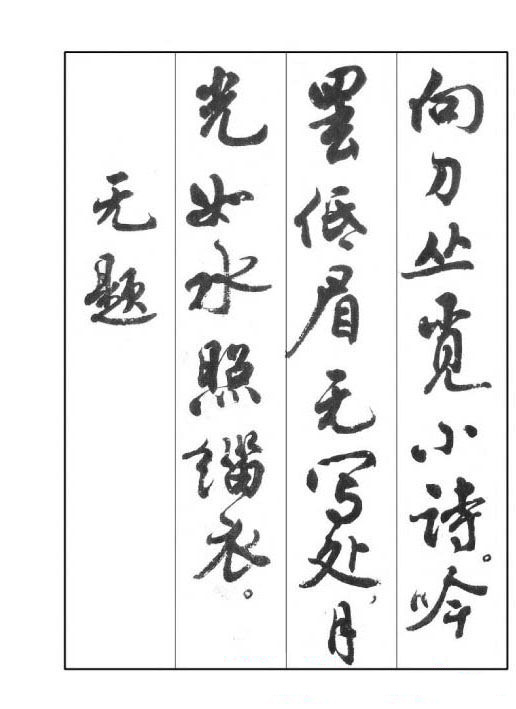 向刀丛觅小诗。吟
罢低眉无写处,月
光如水照缁衣。
无题